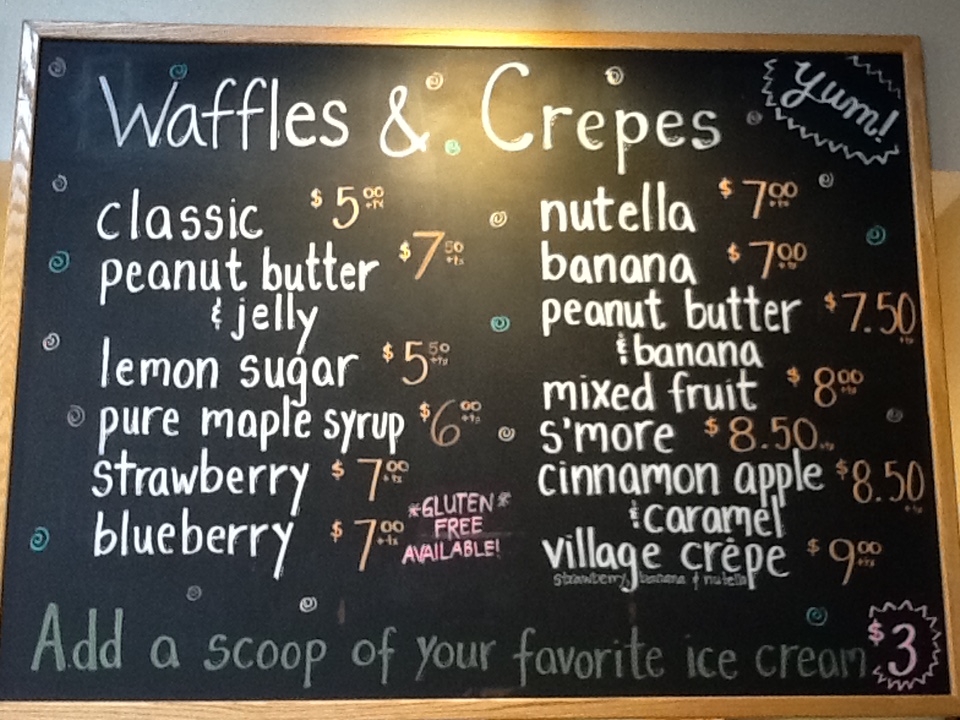 Waffles & Crepes
Yum!
classic $5.00 +tx
peanut butter $7.50 +tx
& jelly
lemon sugar $5.50 +tx
pure maple syrup $6.00 +tx
strawberry $7.00 +tx
blueberry $7.00 +tx
*GLUTEN*
FREE
AVAILABLE!
nutella $7.00 +tx
banana $7.00 +tx
peanut butter $7.50 +tx
& banana
mixed fruit $8.00 +tx
s'more $8.50 +tx
cinnamon apple $8.50 +tx
& caramel
village crêpe $9.00 +tx
strawberry, banana & nutella
Add a scoop of your favorite ice cream $3